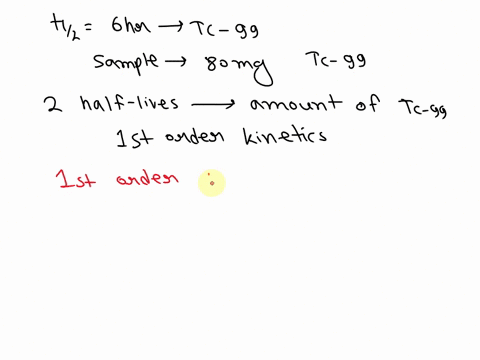 t1/2 = 6hr → Tc-99
Sample → 80mg Tc-99
2 half-lives → amount of Tc-99
1st order kinetics
1st order :